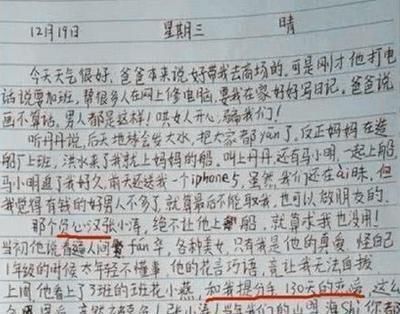 12月19日 星期三 晴
今天天气很好，爸爸本来说好带我去商场的，可是刚才他打电
话说要加班，帮很多人在网上修电脑，要我在家好好写日记，爸爸说
画不算话，男人都是这样！哄女人开心，骗我们！
听丹丹说，后天地球会发大水，把大家都yan了，反正妈妈在造
船厂上班，洪水来了我就上妈妈的船。叫上丹丹还有马小明，一起上船，
马小明追了我好久，前天还送我一个iphone5，虽然，我们还在ai昧，但
我觉得有钱的好男人不多了，就算最后不能取我，也可以做朋友的。
那个负心汉张小涛，绝不让他上船，就算求我也没用！
当初他说看遍人间fan华，各种美女，只有我是他的真爱，怪自己
1年级的时候太年轻不懂事，他的花言巧语，竟让我无法自拔，
上周，他看上了3班的班花小燕，和我提分手，130天的恋爱，这么